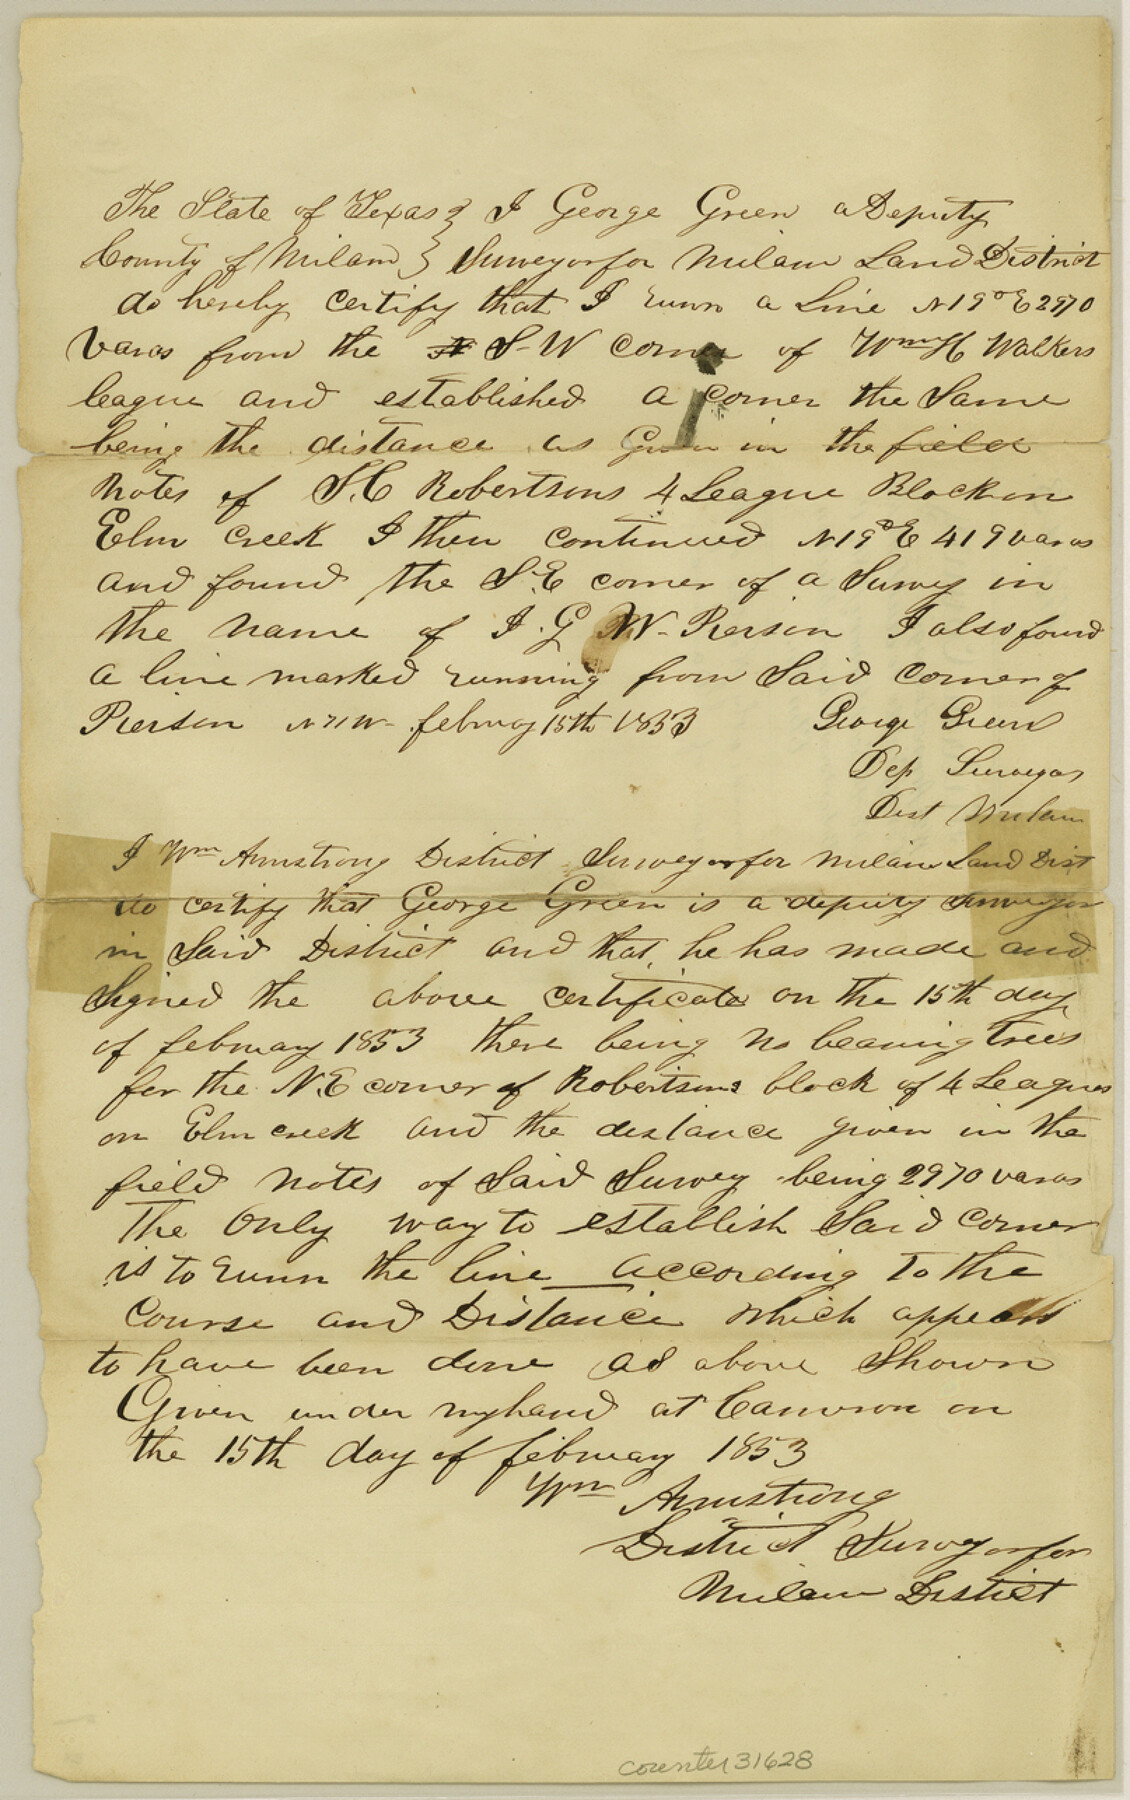 The State of Texas } I George Green a Deputy
County of Milam } Surveyor for Milam Land District
do hereby certify that I runn a Line N19°E 2970
varas from the S-W corner of Wm H Walkers
league and established a corner the Same
being the distance as Given in the field
Notes of S.C Robertsons 4 League Block on
Elm Creek I then continued N19°E 419 varas
and found the S.E corner of a Survey in
the name of J. G W. Pierson I also found
a line marked running from Said corner of
Pierson N71W- february 15th 1853 George Green
Dep Surveyor
Dist Milam
I Wm Armstrong District Surveyor for Milam Land Dist
do certify that George Green is a deputy Surveyor
in Said District and that he has made and
Signed the above certificate on the 15th day
of february 1853 there being no bearing trees
for the N.E corner of Robertsons block of 4 Leagues
on Elm creek and the distance given in the
field notes of Said Survey being 2970 varas
The Only way to establish Said corner
is to runn the line according to the
Course and Distance which appears
to have been done as above Shown
Given under my hand at Cameron on
the 15th day of february 1853
Wm Armstrong
District Surveyor for
Milam District
counter 31628